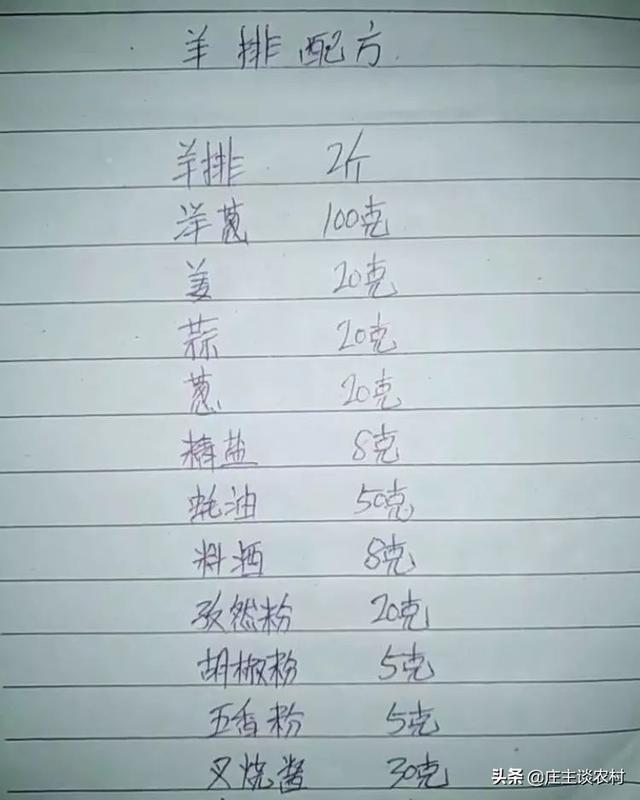 羊排配方
羊排 2斤
洋葱 100克
姜 20克
蒜 20克
葱 20克
精盐 8克
蚝油 50克
料酒 8克
孜然粉 20克
胡椒粉 5克
五香粉 5克
叉烧酱 30克
头条 @庄主谈农村